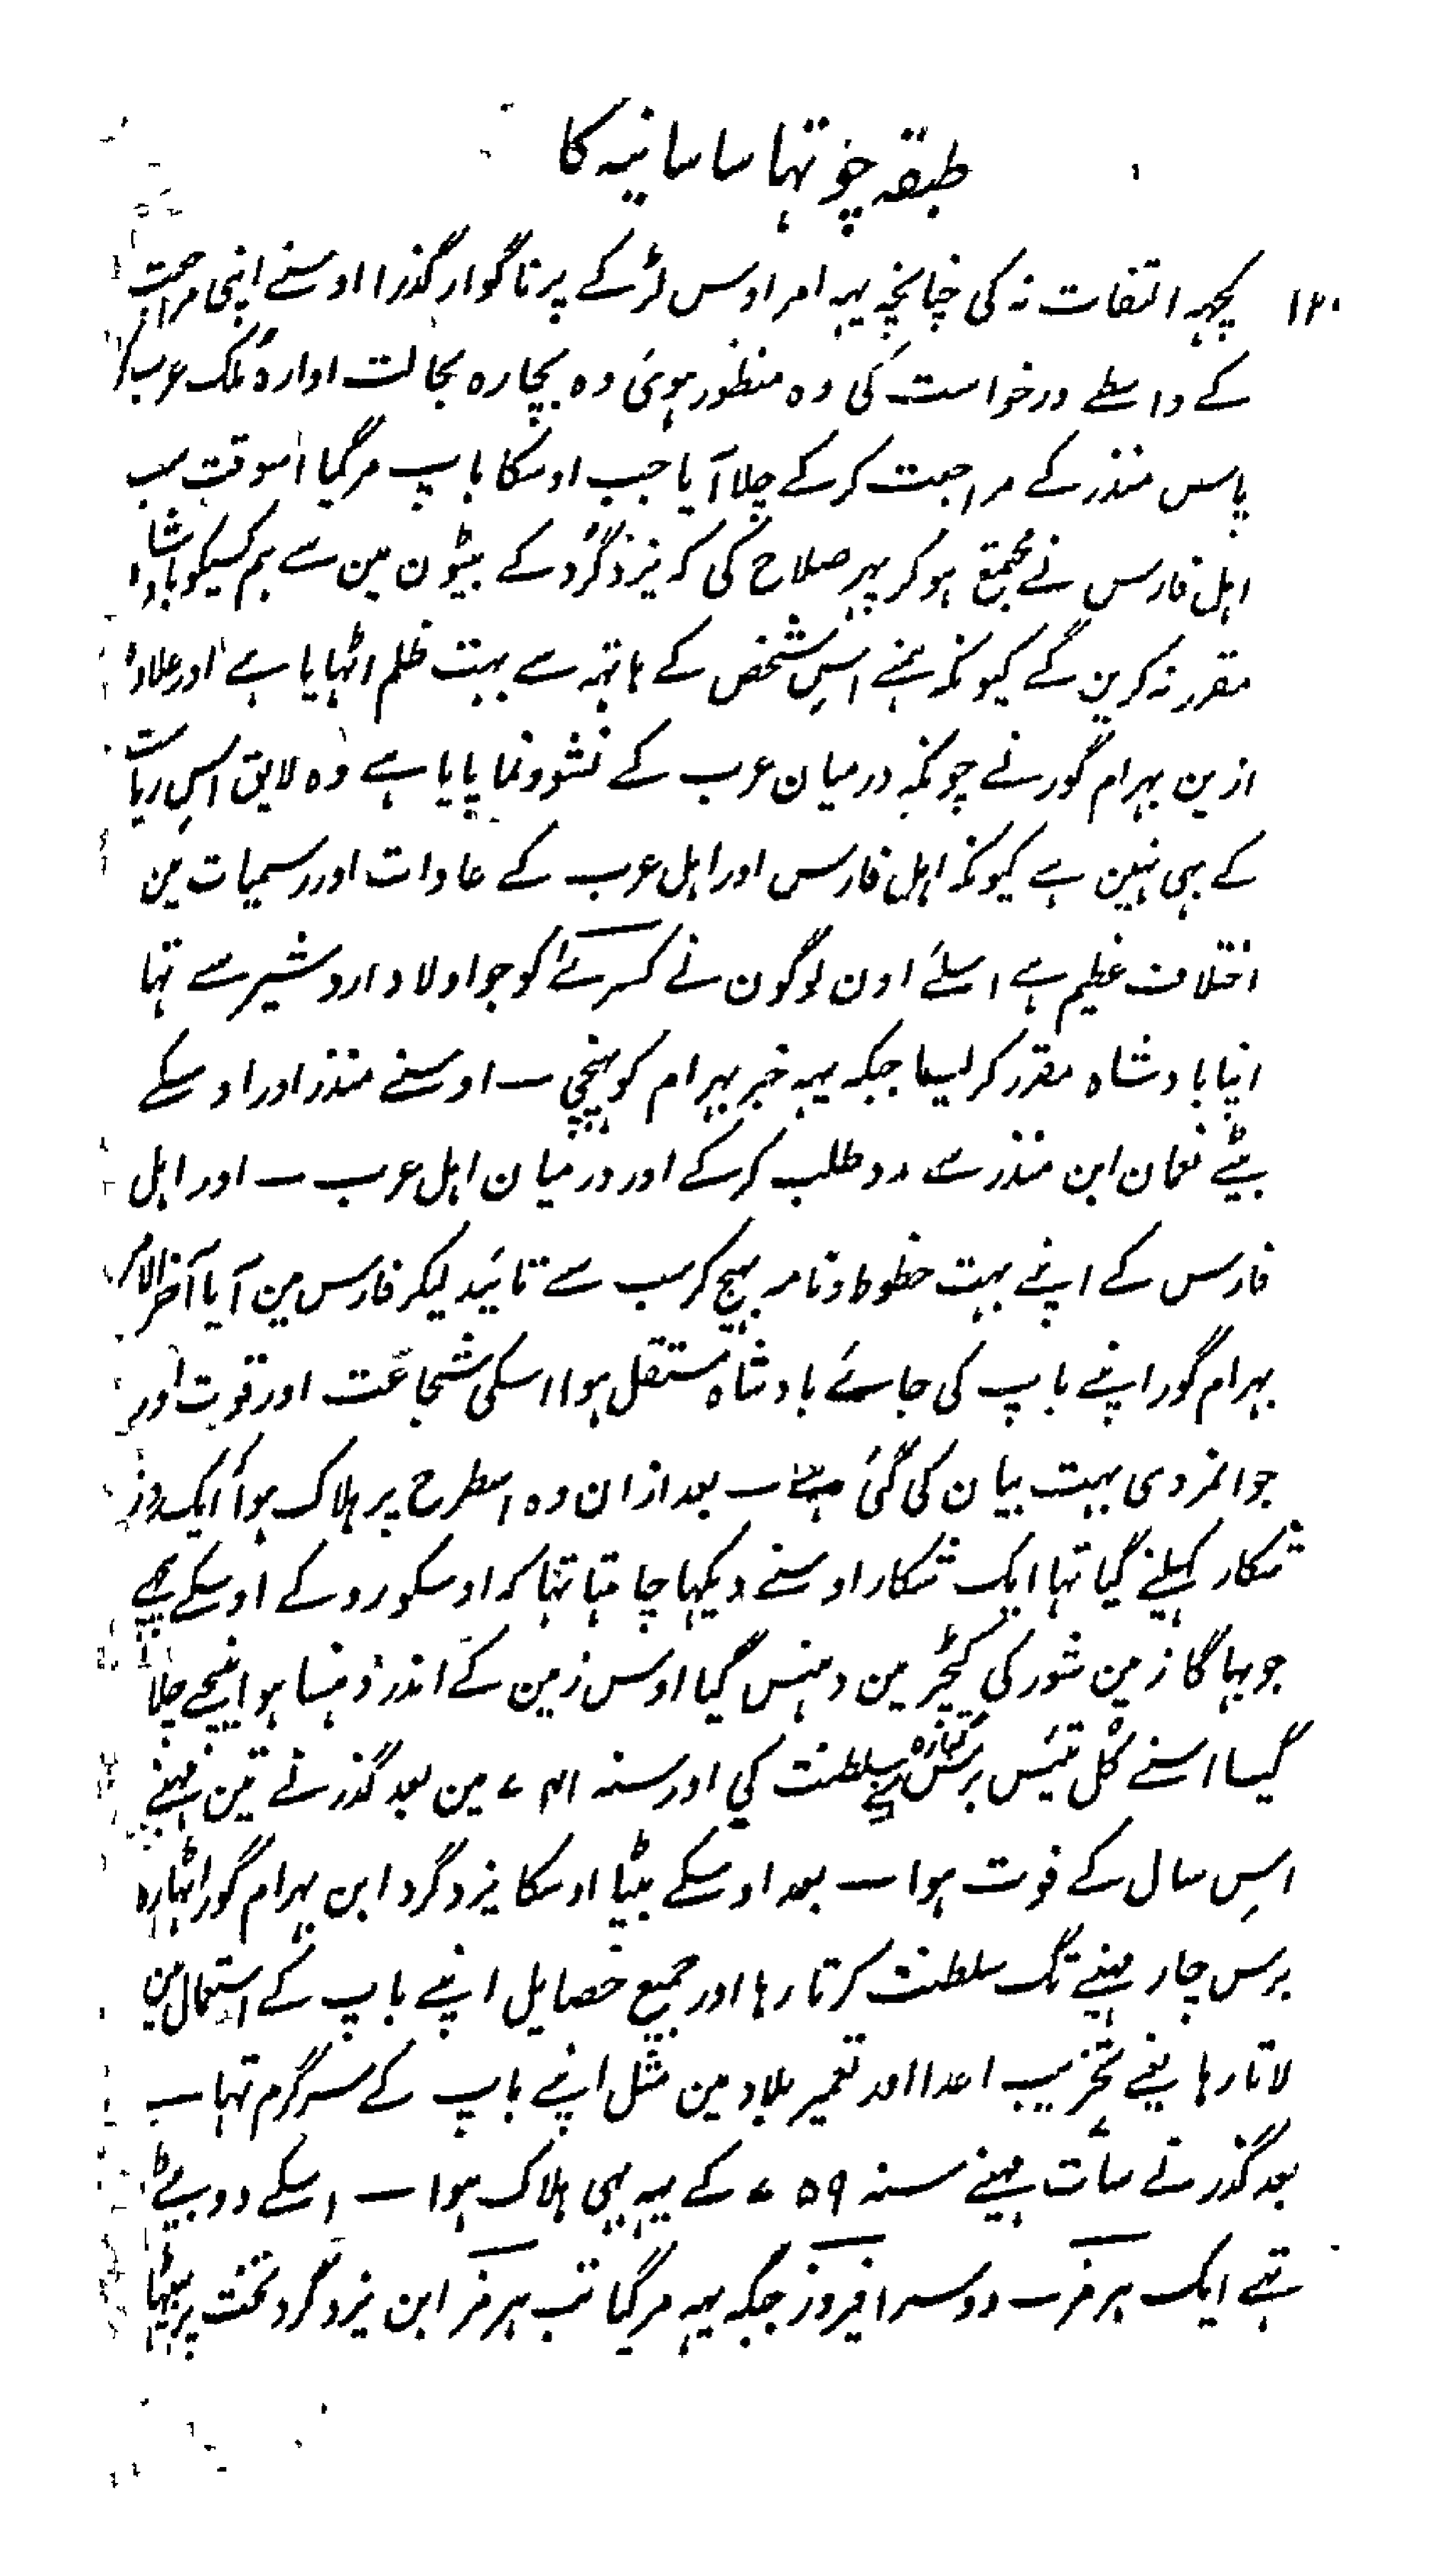 طبقہ چوتہا ساسانیہ کا
۱۲۰ کچہہ التفات نہ کی چنانچہ یہہ امر اوس لڑکے پر ناگوار گذرا اوسنے اپنی مراجعت
کے واسطے درخواست کی وہ منظور ہوئی وہ بیچارہ بحالت اوارہ ملک عرب
پاس منذر کے مراجعت کرکے چلا آیا جب اوسکا باپ مرگیا اسوقت سب
اہل فارس نے مجتمع ہوکر یہہ صلاح کی کہ یزدگرد کے بیٹون مین سے ہم کسیکو بادشاہ
مقرر نہ کرین گے کیونکہ ہمنے اس شخص کے ہاتہہ سے بہت ظلم اٹہایا ہے اور علاوہ
ازین بہرام گور نے چونکہ درمیان عرب کے نشوونما پایا ہے وہ لایق اس ریاست
کے بہی نہین ہے کیونکہ اہل فارس اور اہل عرب کے عادات اور رسمیات مین
اختلاف عظیم ہے اسلئے اون لوگون نے کسرے کو جو اولاد اردشیر سے تہا
اپنا بادشاہ مقرر کر لیا جبکہ یہہ خبر بہرام کو پہنچی ـ اوسنے منذر اور اوسکے
بیٹے نعمان ابن منذر سے مدد طلب کرکے اور درمیان اہل عرب ـ اور اہل
فارس کے اپنے بہت خطوط ونامہ بہیج کر سب سے تائید لیکر فارس مین آیا آخر الامر
بہرام گور اپنے باپ کی جائے بادشاہ مستقل ہوا اسکی شجاعت اور قوت اور
جوانمردی بہت بیان کی گئی ہے ـ بعد ازان وہ اسطرح پر ہلاک ہوا ایک روز
شکار کہیلنے گیا تہا ایک شکار اوسنے دیکہا چاہتا تہا کہ اوسکو روکے اوسکے پیچہے
جو بہاگا زمین شور کی کیچڑ مین دہنس گیا اوس زمین کے اندر دہنسا ہوا نیچے چلا
گیا اسنے کل تیئس برس گیارہ مہینے سلطنت کی اور سنہ ۷۴۱ مین بعد گذرنے تین مہینے
اس سال کے فوت ہوا ـ بعد اوسکے بیٹا اوسکا یزدگرد ابن بہرام گور اٹہارہ
برس چار مہینے تک سلطنت کرتا رہا اور جمیع خصایل اپنے باپ کے استعمال مین
لاتا رہا یعنے تخریب اعدا اور تعمیر بلاد مین مثل اپنے باپ کے سرگرم تہا ـ
بعد گذرنے سات مہینے سنہ ۷۵۹ کے یہہ بہی ہلاک ہوا ـ اسکے دو بیٹے
تہے ایک ہرمز ـ دوسرا فیروز جبکہ یہہ مرگیا تب ہرمز ابن یزدگرد تخت پر بیٹہا